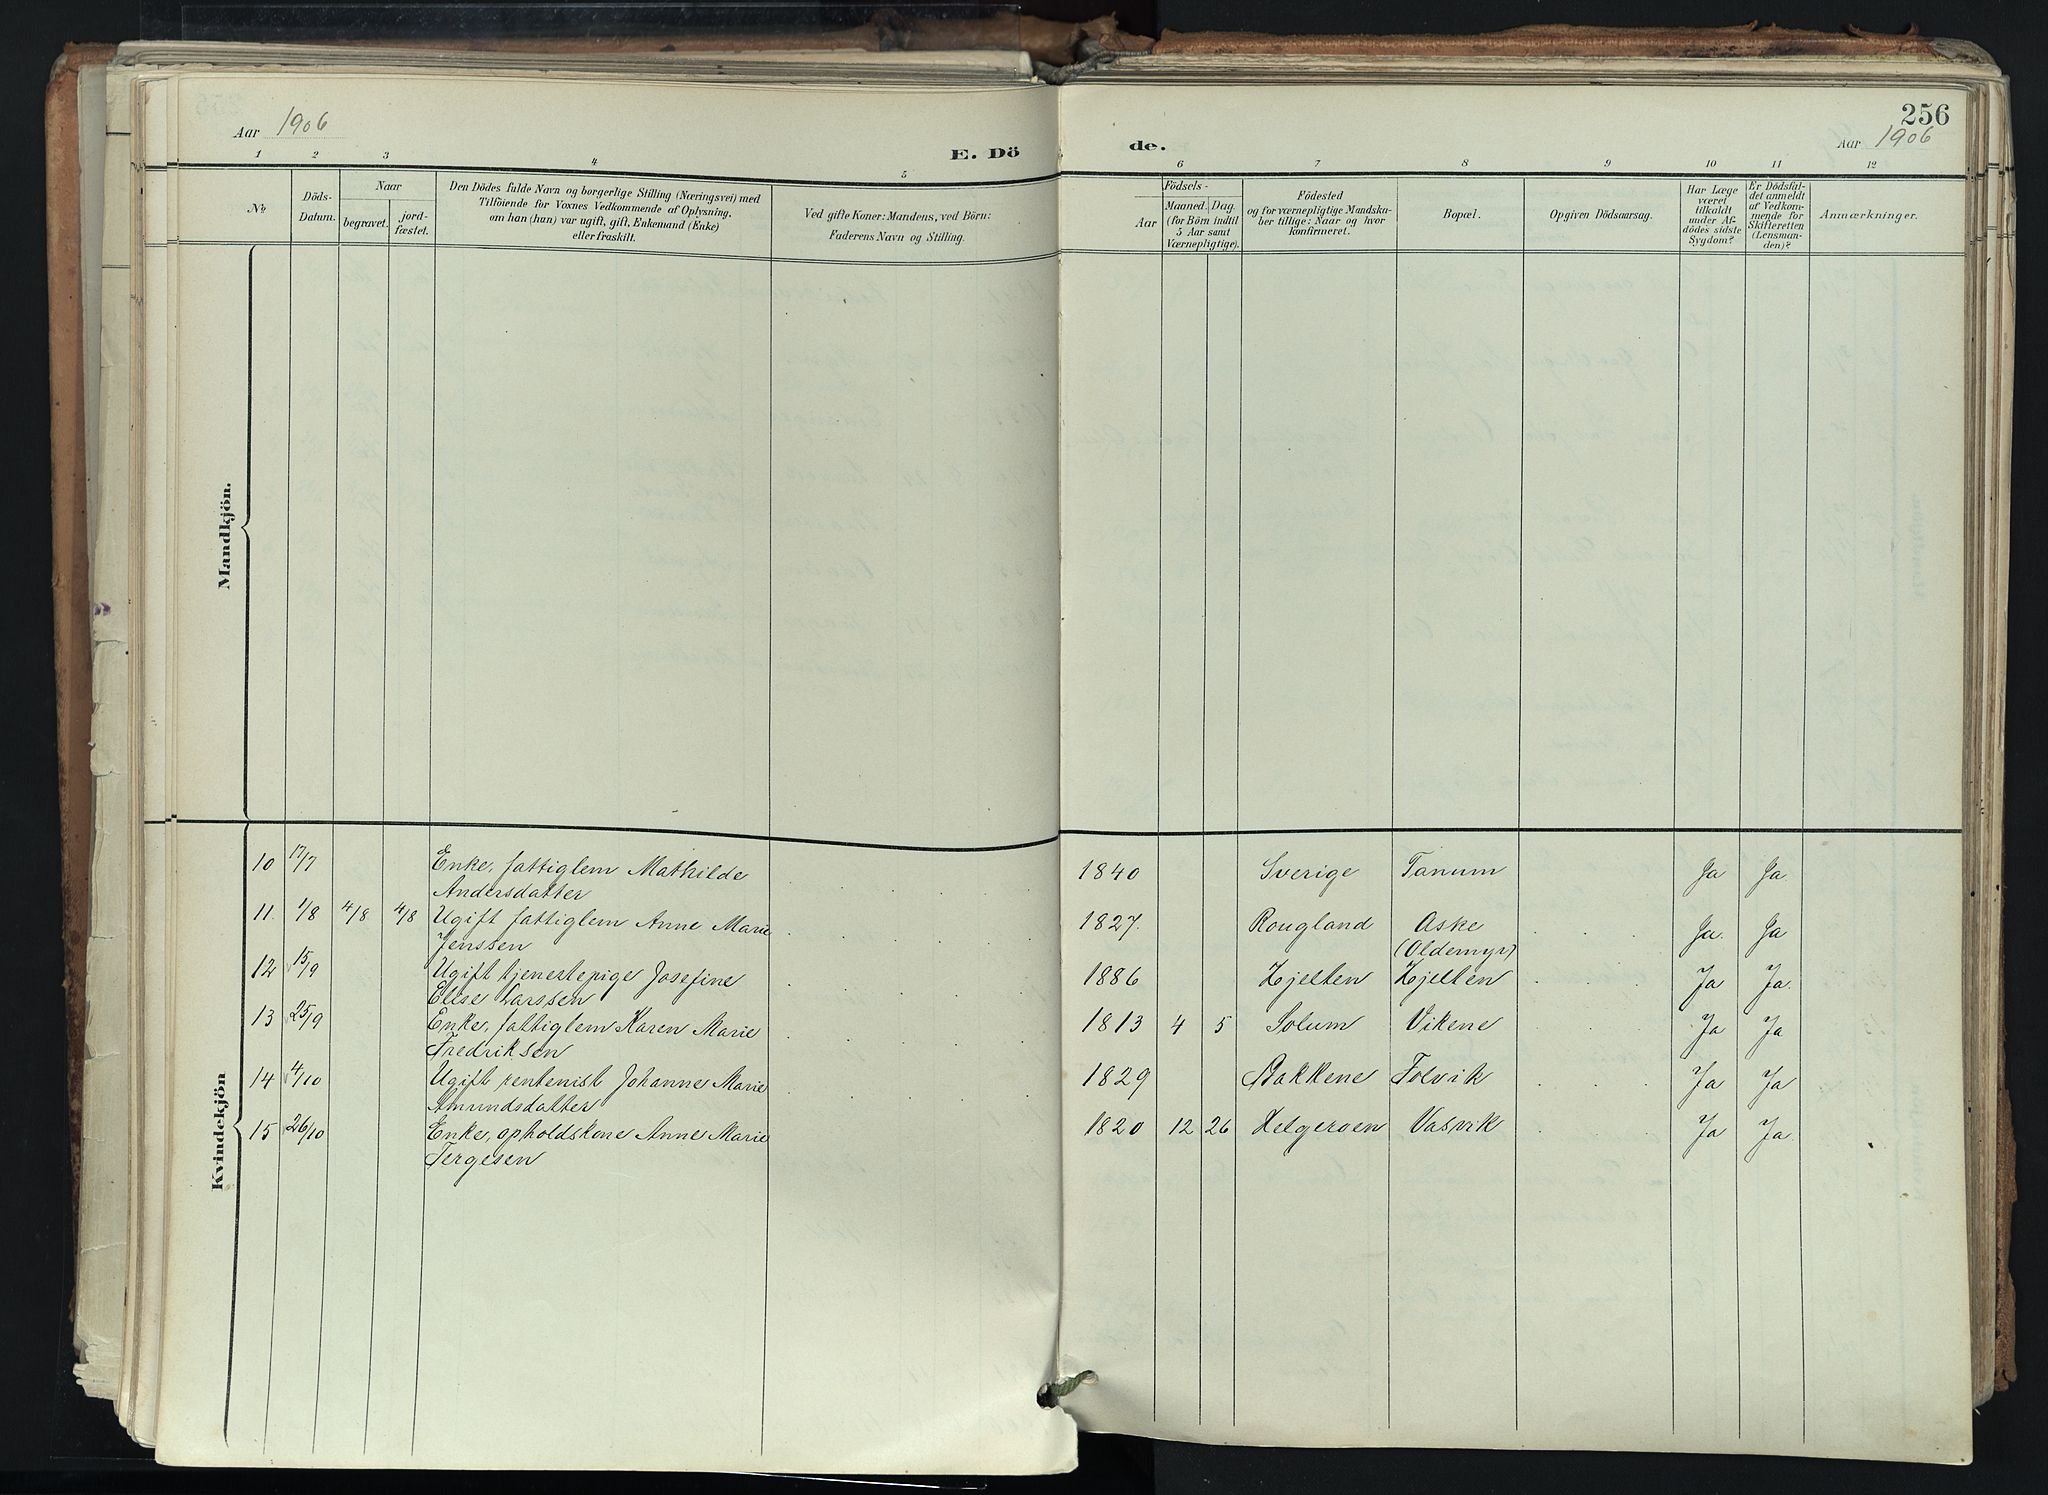 256
Aar 1906
E. Dö
de.
Aar 1906
1 2 3 4 5 6 7 8 9 10 11 12
No
Döds-
Datum.
Naar
begravet.
jord-
fæstet.
Den Dödes fulde Navn og borgerlige Stilling (Næringsvei) med
Tilföiende for Voxnes Vedkommende af Oplysning,
om han (hun) var ugift, gift, Enkemand (Enke)
eller fraskilt.
Ved gifte Koner: Mandens, ved Börn:
Faderens Navn og Stilling.
Födsels-
Aar
Maaned. Dag.
(for Börn indtil
5 Aar samt
Værnepligtige).
Födested
og for værnepligtige Mandska-
ber tillige: Naar og hvor
konfirmeret.
Bopæl.
Opgiven Dödsaarsag.
Har Læge
været
tilkaldt
under Af-
dödes sidste
Sygdom?
Er Dödsfal-
det anmeldt
af Vedkom-
mende for
Skifteretten
(Lensman-
den)?
Anmærkninger.
Mandkjön.
Kvindekjön
10 17/7 Enke, fattiglem Mathilde 1840 Sverige Tanum Ja Ja
Andersdatter
11. 1/8 4/8 4/8 Ugift fattiglem Anne Marie 1827. Rougland Aske Ja. Ja
Jenssen (Oldemyr)
12 15/9 Ugift tjenestepige Josefine 1886 Hjelten Hjelten Ja Ja.
Elise Larssen
13 25/9 Enke, fattiglem Karen Marie 1813 4 5 Solum Vikene Ja Ja
Fredriksen
14 4/10 Ugift rentenist Johanne Marie 1829 Bakkene Folvik Ja Ja
Amundsdatter
15 26/10 Enke, opholdskone Anne Marie 1820 12 26 Helgeroen Vasvik Ja Ja.
Tergesen